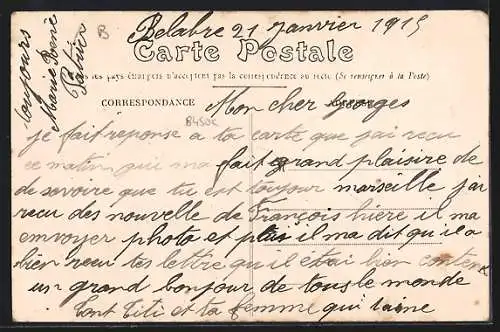 Belabre 21 Janvier 1915
B
Carte Postale
ses pays étrangers n'acceptent pas la correspondance au recto (Se renseigner à la Poste)
CORRESPONDANCE
Mon cher Georges
84502
je fait reponse a ta carte que j'ai recu
ce matin qui ma fait grand plaisire de
de savoire que tu est toujour marseille j'ai
recu des nouvelle de François hière il ma
envoyer photo et plui il ma dit qu'il a
bien recu tes lettre qu'il étai bien content
un grand bonjour de tous le monde
Tont Titi et ta femme qui t'aime
toujours
Marie René